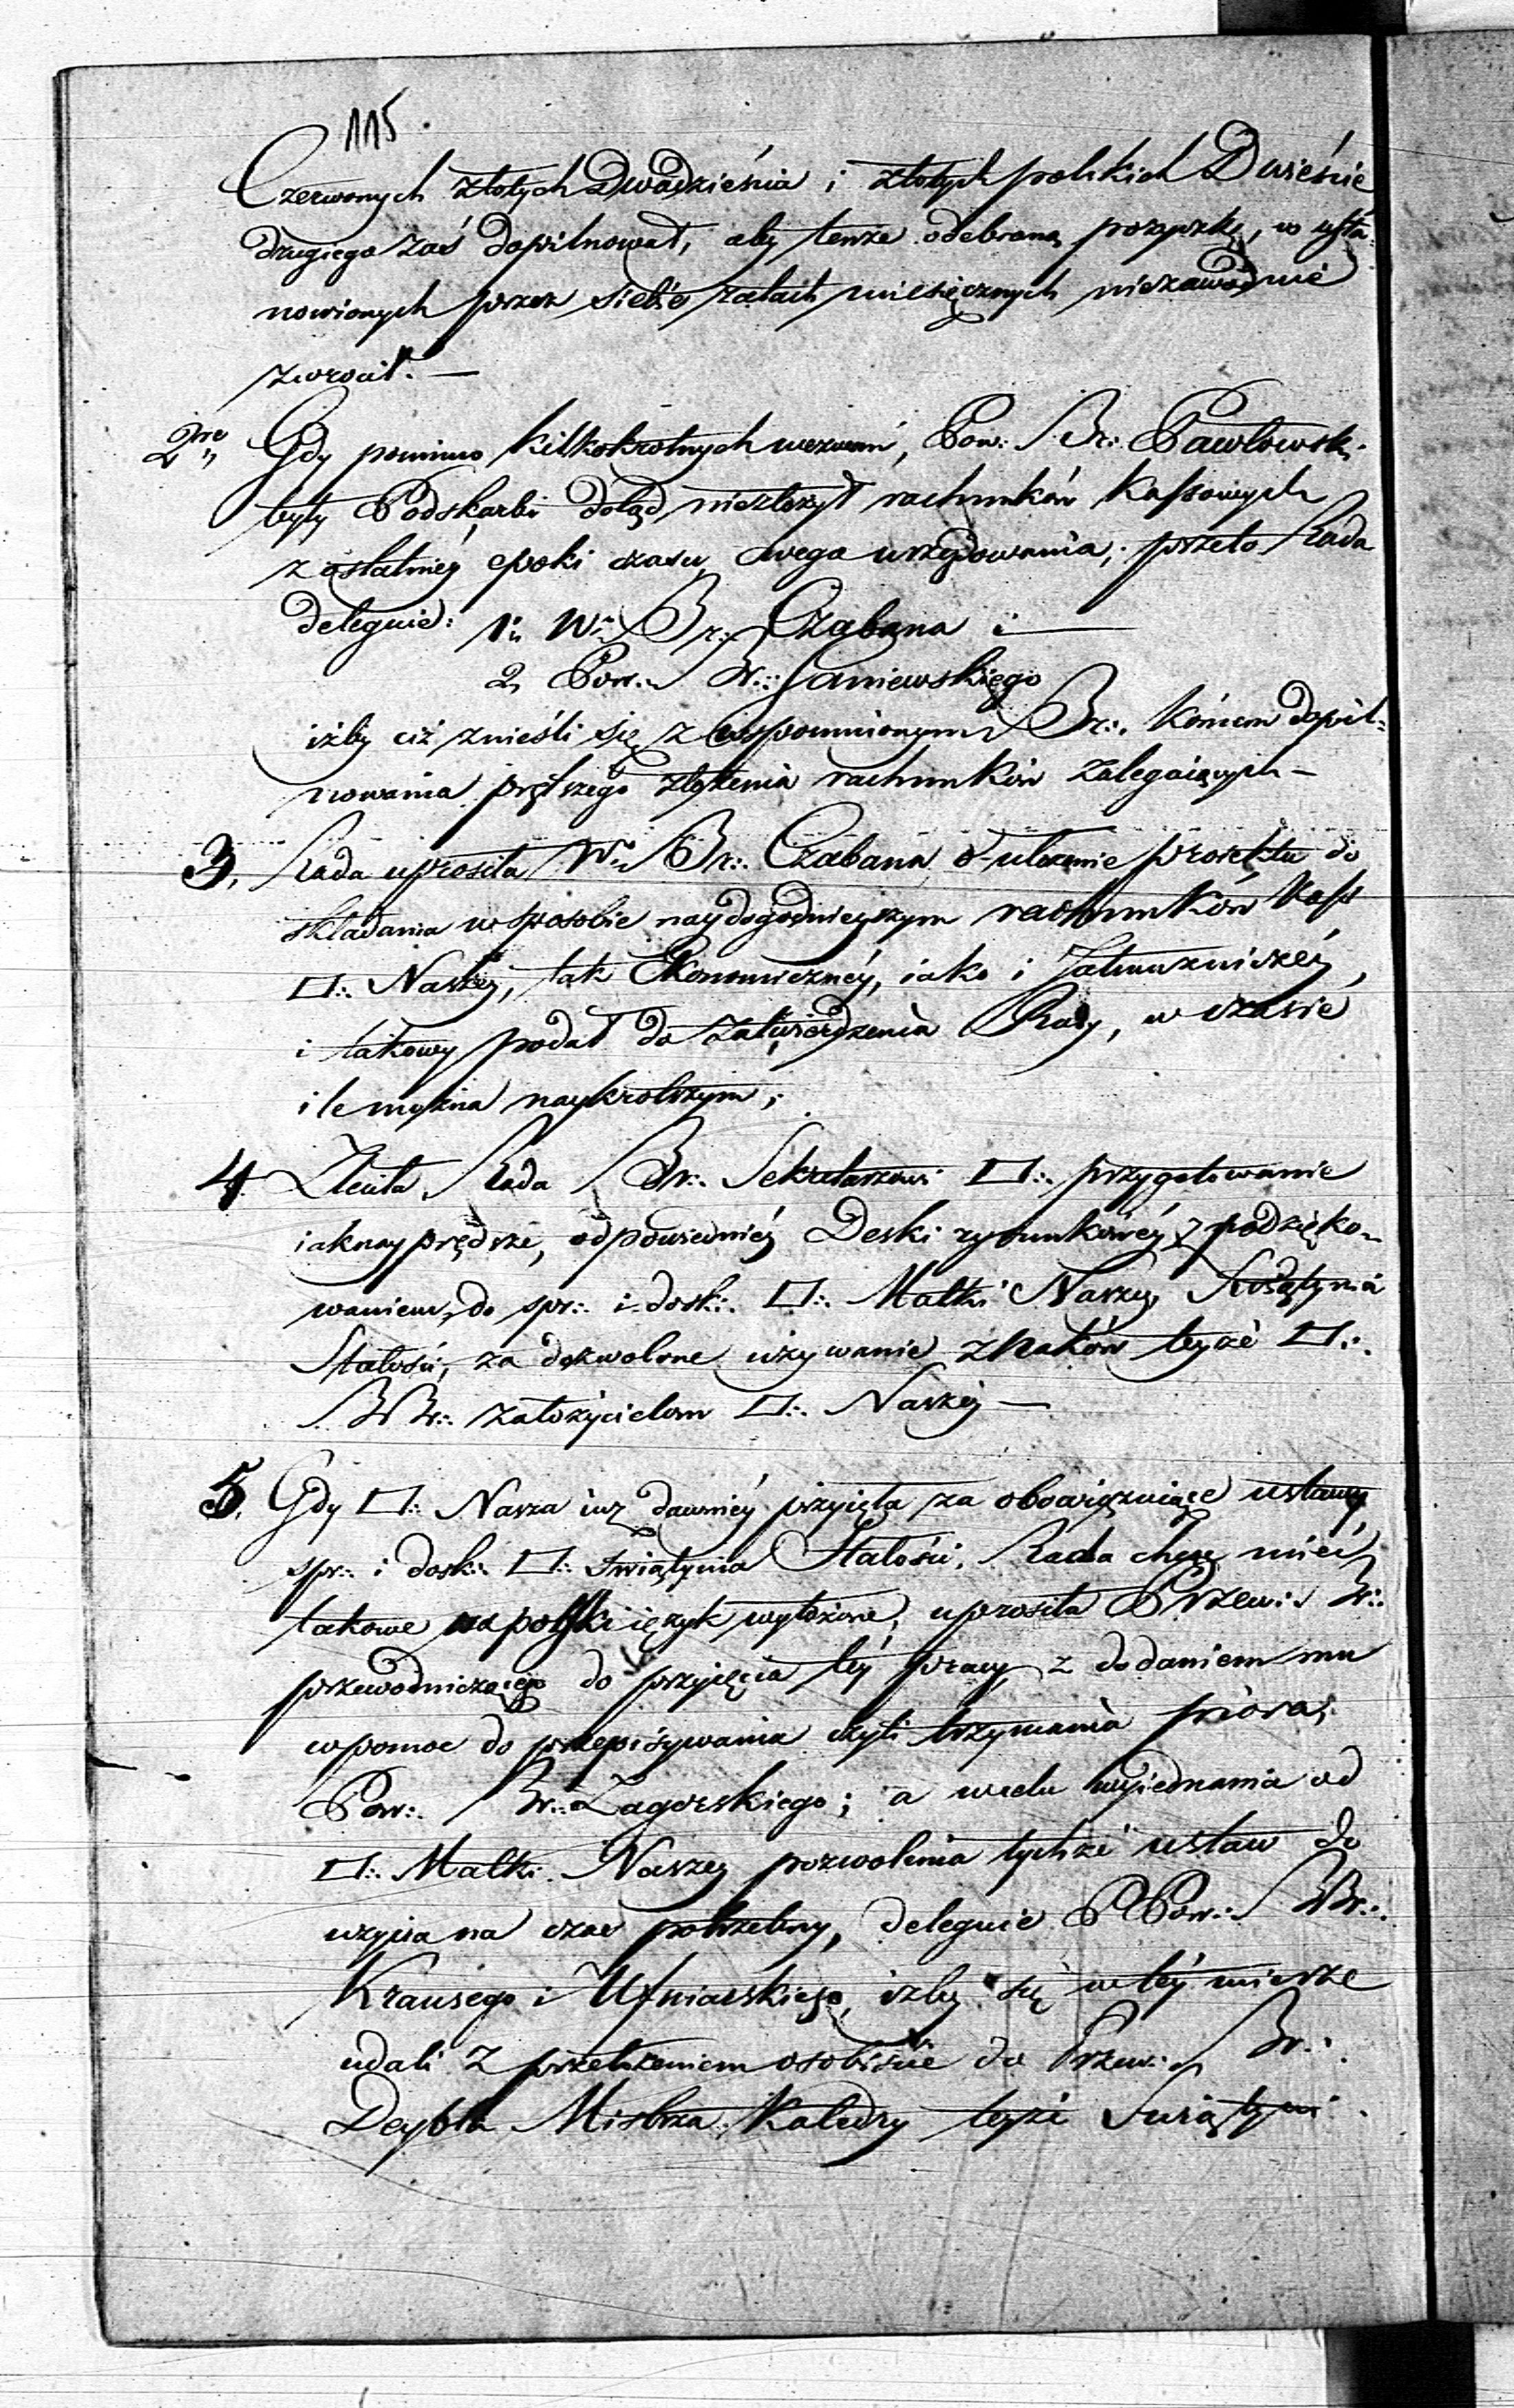 115.
Czerwonych złotych Dwadzieścia i złotych polskich Dwieście
drugiego zaś dopilnował, aby tenże odebraną pożyczkę, w usta-
nowionych przez siebie ratach miesięcznych niezawodnie
zwrócił. —
2re Gdy pomimo kilkokrotnych wezwań, Pow: Br: Pawłowski
były Podskarbi dotąd niezłożył rachunków Kassowych
z ostatniéy epoki czasu swego urzędowania; przeto Rada
deleguie: 1: W: Br: Czabana i —
2, Pow: Br: Janiewskiego
iżby ciż znieśli się z wspomnionym Br: końcem dopil-
nowania prętszego złożenia rachunków zalegaiących —
3, Rada uprosiła W: Br: Czabana o ułożenie proiektu do
składania w sposobie naydogodnieyszym rachunków Kass
□: Naszéy, tak Ekonomicznéy, iako i Jałmużniczéy,
i takowy podał do zatwierdzenia Rady, w czasie
ile można naykrotszym;
4. Zleciła Rada Br: Sekretarzowi □: przygotowanie
iaknayprędsze, odpowiedniéy Deski rysunkowéy z podzięko-
waniem, do spr: i dosk: □: Matki Naszéy Świątynia
Stałości, za dozwolone używanie znaków teyże □:
BBr: założycielom □: Naszéy —
5, Gdy □: Nasza iuż dawniéy przyięła za obowięzuiące ustawy
spr: i dosk: □: Świątynia Stałości, Rada chcąc mieć
takowe na polski ięzyk wyłożone, uprosiła Przew: Br:
przewodniczącego do przyięcia téy pracy z dodaniem mu
w pomoc do przepisywania czyli trzymania pióra;
Pow: Br: Zagorskiego; a wcelu wyiednania od
□: Matki Naszéy pozwolenia tychże ustaw do
użycia na czas potrzebny, deleguie PPow: BBr:
Krausego i Ufniarskiego, iżby się w téy mierze
udali z przełożeniem osobiście do Przew: Br:
Deybla Mistrza Katedry teyże Świątyni